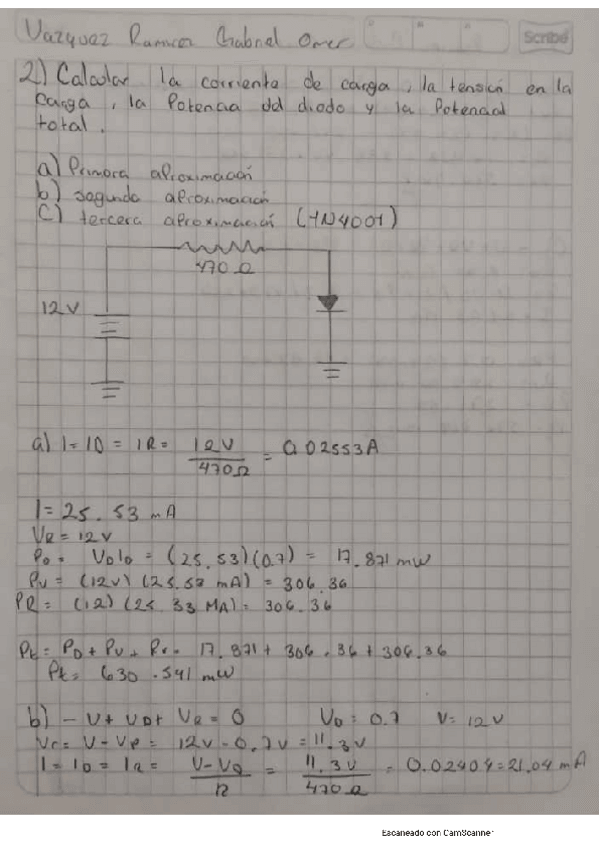 Vazquez Ramirez Gabriel Omar
Scribe
2) Calcular la corriente de carga, la tensión en la
carga, la Potencia del diodo y la Potencial
total.
a) Primera aproximación
b) segunda aproximación
c) tercera aproximación (1N4001)
470 Ω
12V
a) I = ID = IR = 12V / 470Ω = 0.02553A
I = 25.53 mA
VR = 12V
PD = VDID = (25.53)(0.7) = 17.871 mW
PV = (12V) (25.53 mA) = 306.36
PR = (12) (25.53 MA) = 306.36
Pt = PD + PV + Pr = 17.871 + 306.36 + 306.36
Pt = 630.591 mW
b) - V + VD + VR = 0 VD = 0.7 V = 12V
Vr = V - VD = 12V - 0.7V = 11.3V
I = ID = IR = V - VD / R = 11.3V / 470Ω = 0.02404 = 21.04 mA
Escaneado con CamScanner